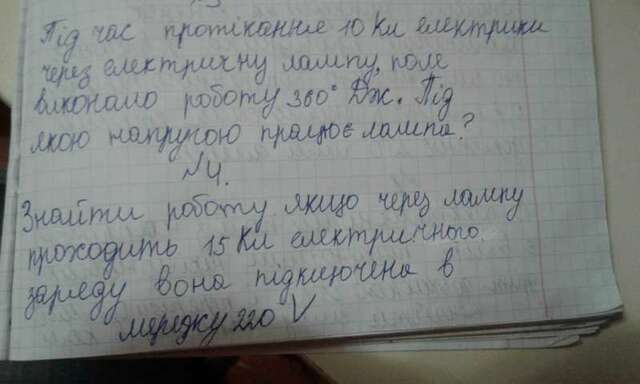 Під час протікання 10 Кл електрики
через електричну лампу, поле
виконало роботу 360° Дж. Під
якою напругою працює лампа?
№4.
Знайти роботу якщо через лампу
проходить 15 Кл електричного
заряду вона підключена в
мережу 220 V